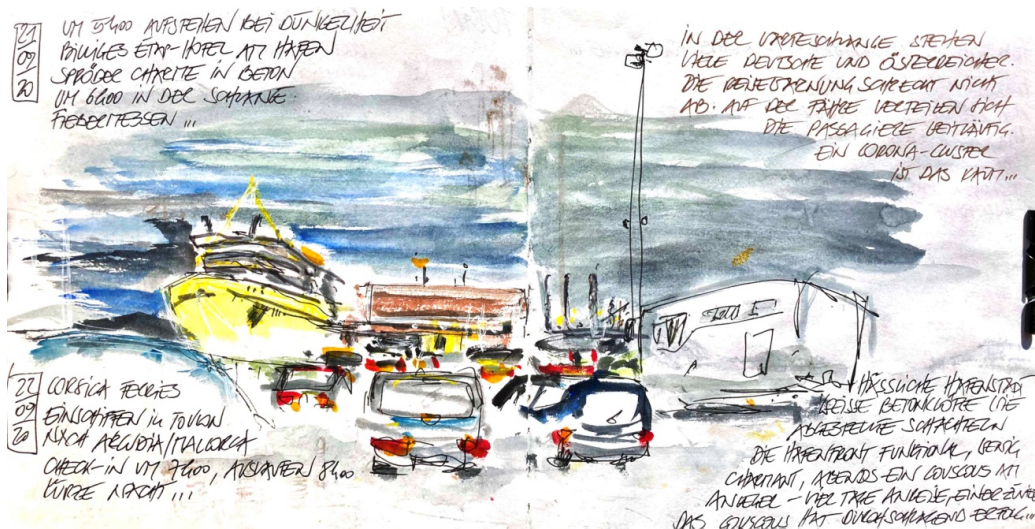 21
09
20
UM 5h00 AUFSTEHEN BEI DUNKELHEIT
BILLIGES ETAP-HOTEL AM HAFEN
SPRÖDER CHARME IN BETON
UM 6h00 IN DER SCHLANGE
FIEBERMESSEN ...
IN DER WARTESCHLANGE STEHEN
VIELE DEUTSCHE UND ÖSTERREICHER.
DIE REISEWARNUNG SCHRECKT NICHT
AB. AUF DER FÄHRE VERTEILEN SICH
DIE PASSAGIERE WEITLÄUFIG.
EIN CORONA-CLUSTER
IST DAS KAUM...
22
09
20
CORSICA FERRIES
EINSCHIFFEN in TOULON
NACH ALCUDIA/MALLORCA
CHECK-IN UM 7h00, AUSLAUFEN 8h00
KURZE NACHT ...
HÄSSLICHE HAFENSTADT
WEISSE BETONKLÖTZE WIE
ABGESTELLTE SCHACHTELN
DIE HAFENFRONT FUNKTIONAL, WENIG
CHARMANT, ABENDS EIN COUSCOUS AM
VIER TAGE ANREISE, EINER ZUVIEL
DAS COUSCOUS HAT DURCHSCHLAGEND ERFOLG...